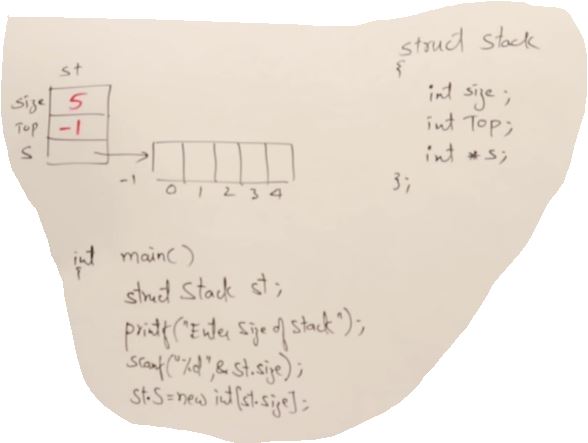 st
size 5
Top -1
S
-1 0 1 2 3 4
struct Stack
{
int size;
int Top;
int *S;
};
int main()
{
struct Stack st;
printf("Enter Size of Stack");
scanf("%d",&st.size);
st.S=new int[st.size];